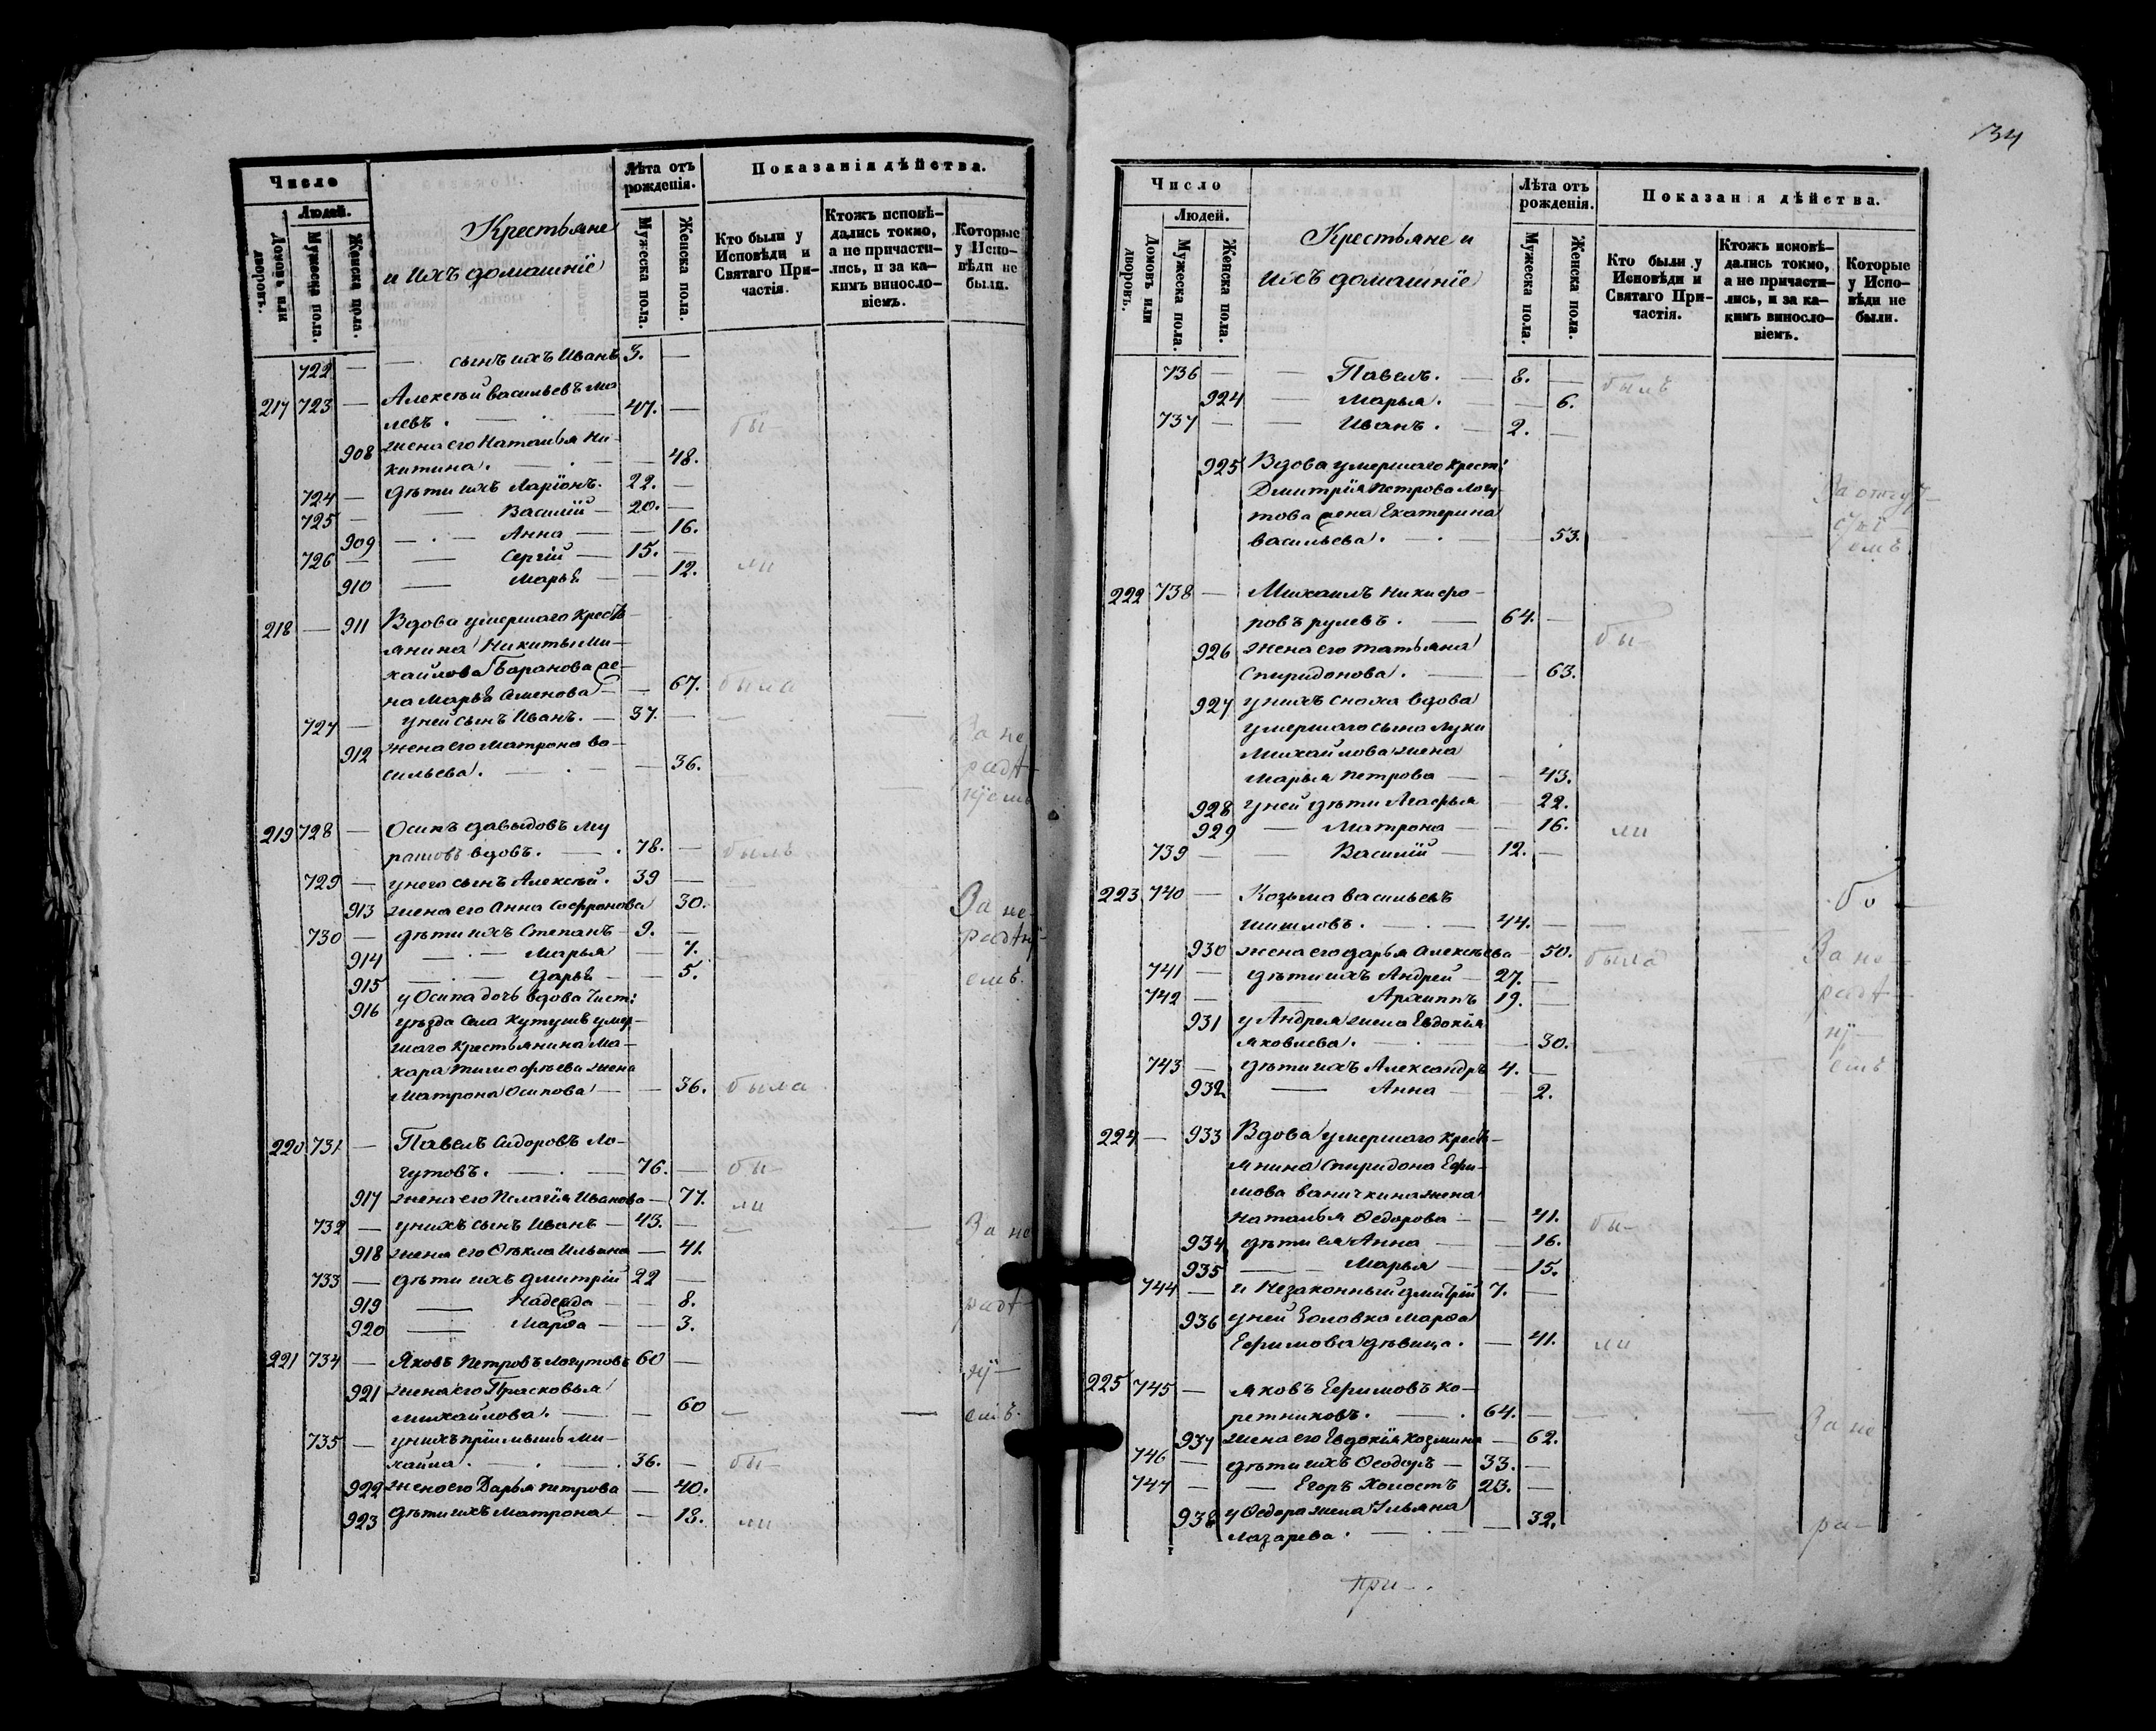 Число
Людей.
Домовъ или дворовъ.
Мужеска пола.
Женска пола.
Крестьяне
и ихъ домашніе
Лѣта отъ рожденія.
Мужеска пола.
Женска пола.
Показанія дѣйства.
Кто были у Исповѣди и Святаго Причастія.
Ктожъ исповѣдались токмо, а не причастились, и за какимъ винословіемъ.
Которые у Исповѣди не были.
722 — — сынъ ихъ Иванъ 3. —
217 723 — Алексѣй Васильевъ Ма
левъ. — 47. — бы-
908 жена его Наталья Ни-
китина. — 48.
724 — дѣти ихъ Ларіонъ. 22. —
725 — — Василій — 20. —
909 — Анна — — 16.
726 — — Сергій — 15. —
910 — Марья — — 12. ли
218 — 911 Вдова умершаго кресть-
янина Никиты Ми-
хайлова Баранова же-
на Марья Семенова — — 67. была
727 — у ней сынъ Иванъ. — 37. — — — За не
912 жена его Матрона Ва-
сильева. — — 36. радѣ-
ніемъ
219 728 — Осипъ Давыдовъ Му
ратовъ вдовъ. — 78. — былъ
729 — у него сынъ Алексѣй. 39 —
913 жена его Анна Софронова 30. За не-
730 — дѣти ихъ Степанъ — 9. — радѣні-
914 — Марья — 7.
915 — Дарья — — 5. емъ.
916 у Осипа дочь вдова Чист:
уѣзда села Кутушъ умер-
шаго крестьянина Ма-
кара Тимофѣева жена
Матрона Осипова — — 36. была
220 731 — Павелъ Сидоровъ Ло-
гутовъ. — 76. — бы-
917 жена его Пелагія Иванова — 77. ли
732 — у нихъ сынъ Иванъ — 43. — — — За не
918 жена его Ѳекла Ильина — 41.
733 — дѣти ихъ Дмитрій 22 —
919 — Надежда — — 8. радѣ-
920 — Марѳа — — 3.
221 734 — Яковъ Петровъ Логутовъ 60 — ні-
921 жена его Прасковья
Михайлова. — — 60 — — емъ.
735 — у нихъ пріимышъ Ми-
хайла. — 36. — бы-
922 жена его Дарья Петрова — 40.
923 дѣти ихъ Матрона — — 18. ли
134
Число
Людей.
Домовъ или дворовъ.
Мужеска пола.
Женска пола.
Крестьяне и
ихъ домашніе
Лѣта отъ рожденія.
Мужеска пола.
Женска пола.
Показанія дѣйства.
Кто были у Исповѣди и Святаго Причастія.
Ктожъ исповѣдались токмо, а не причастились, и за какимъ винословіемъ.
Которые у Исповѣди не были.
736 — — Павелъ. — 8. — былъ
924 — Марья. — — 6.
737 — — Иванъ. — 2. —
925 Вдова умершаго крест:
Дмитрія Петрова Логу- За отлуч-
това жена Екатерина
Васильева. — — 53. — — емъ
222 738 — Михаилъ Никифо-
ровъ Рулевъ. — 64. — бы-
926 жена его Татьяна
Спиридонова. — — 63.
927 у нихъ сноха вдова
умершаго сына Луки
Михайлова жена
Марья Петрова — — 43.
928 у ней дѣти Агафья — 22.
929 — Матрона — — 16. ли
739 — — Василій — 12. —
223 740 — Козьма Васильевъ
Шишловъ. — 44. —
930 жена его Дарья Алексѣева — 50. была За не-
741 — дѣти ихъ Андрей — 27. —
742 — — Архиппъ 19. — радѣ-
931 у Андрея жена Евдокія ні-
Яковлева. — — 30.
743 — дѣти ихъ Александръ 4. — емъ
932 — Анна — — 2.
224 — 933 Вдова умершаго кресть-
янина Спиридона Ефи-
мова Ваничкина жена
Наталья Ѳедорова — — 41. бы-
934 дѣти ея Анна — — 16.
935 — Марья — — 15.
744 — и Незаконный Дмитрій 7. —
936 у ней Золовка Марѳа
Ефимова дѣвица. — 41. ли
225 745 — Яковъ Ефимовъ Ко-
ретниковъ. — 64. — — — За не
937 жена его Евдокія Козмина — 62.
746 — дѣти ихъ Ѳеодоръ — 33. —
747 — — Егоръ Холостъ 23. —
938 у Ѳедора жена Ульяна
Лазарева. — — 32. ра-
При-.